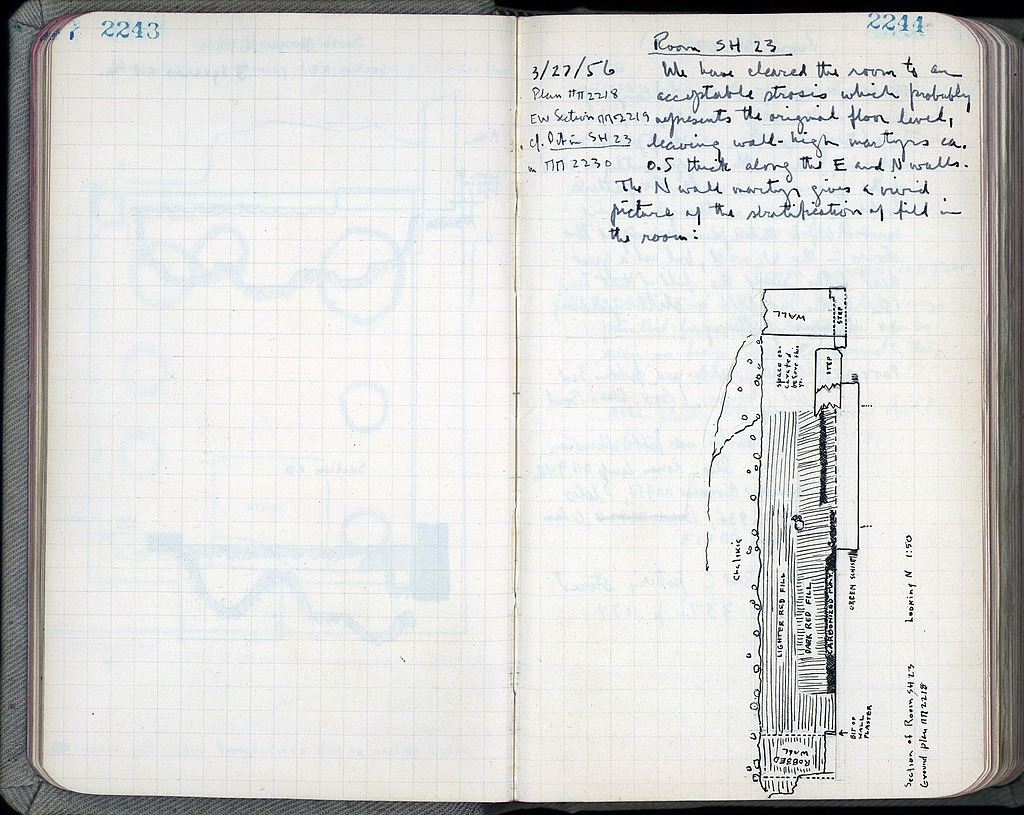 2243
2244
Room SH 23
3/27/56 We have cleared the room to an
Plan ΠΠ 2218 acceptable strosis which probably
EW Section ΠΠ 2219 represents the original floor level,
cf. Pit in SH 23 leaving wall-high martyrs ca.
in ΠΠ 2230 0.5 thick along the E and N walls.
The N wall martyr gives a vivid
picture of the stratification of fill in
the room:
WALL
STEP
space ex-
cavated
before this
yr.
STEP
Chalikia
LIGHTER RED FILL
DARK RED FILL
CARBONIZED MAT
GREEN SCHIST
BIT OF
WALL
PLASTER
ROBBED
WALL
Section of Room SH 23 Looking N 1:50
Ground plan ΠΠ 2218